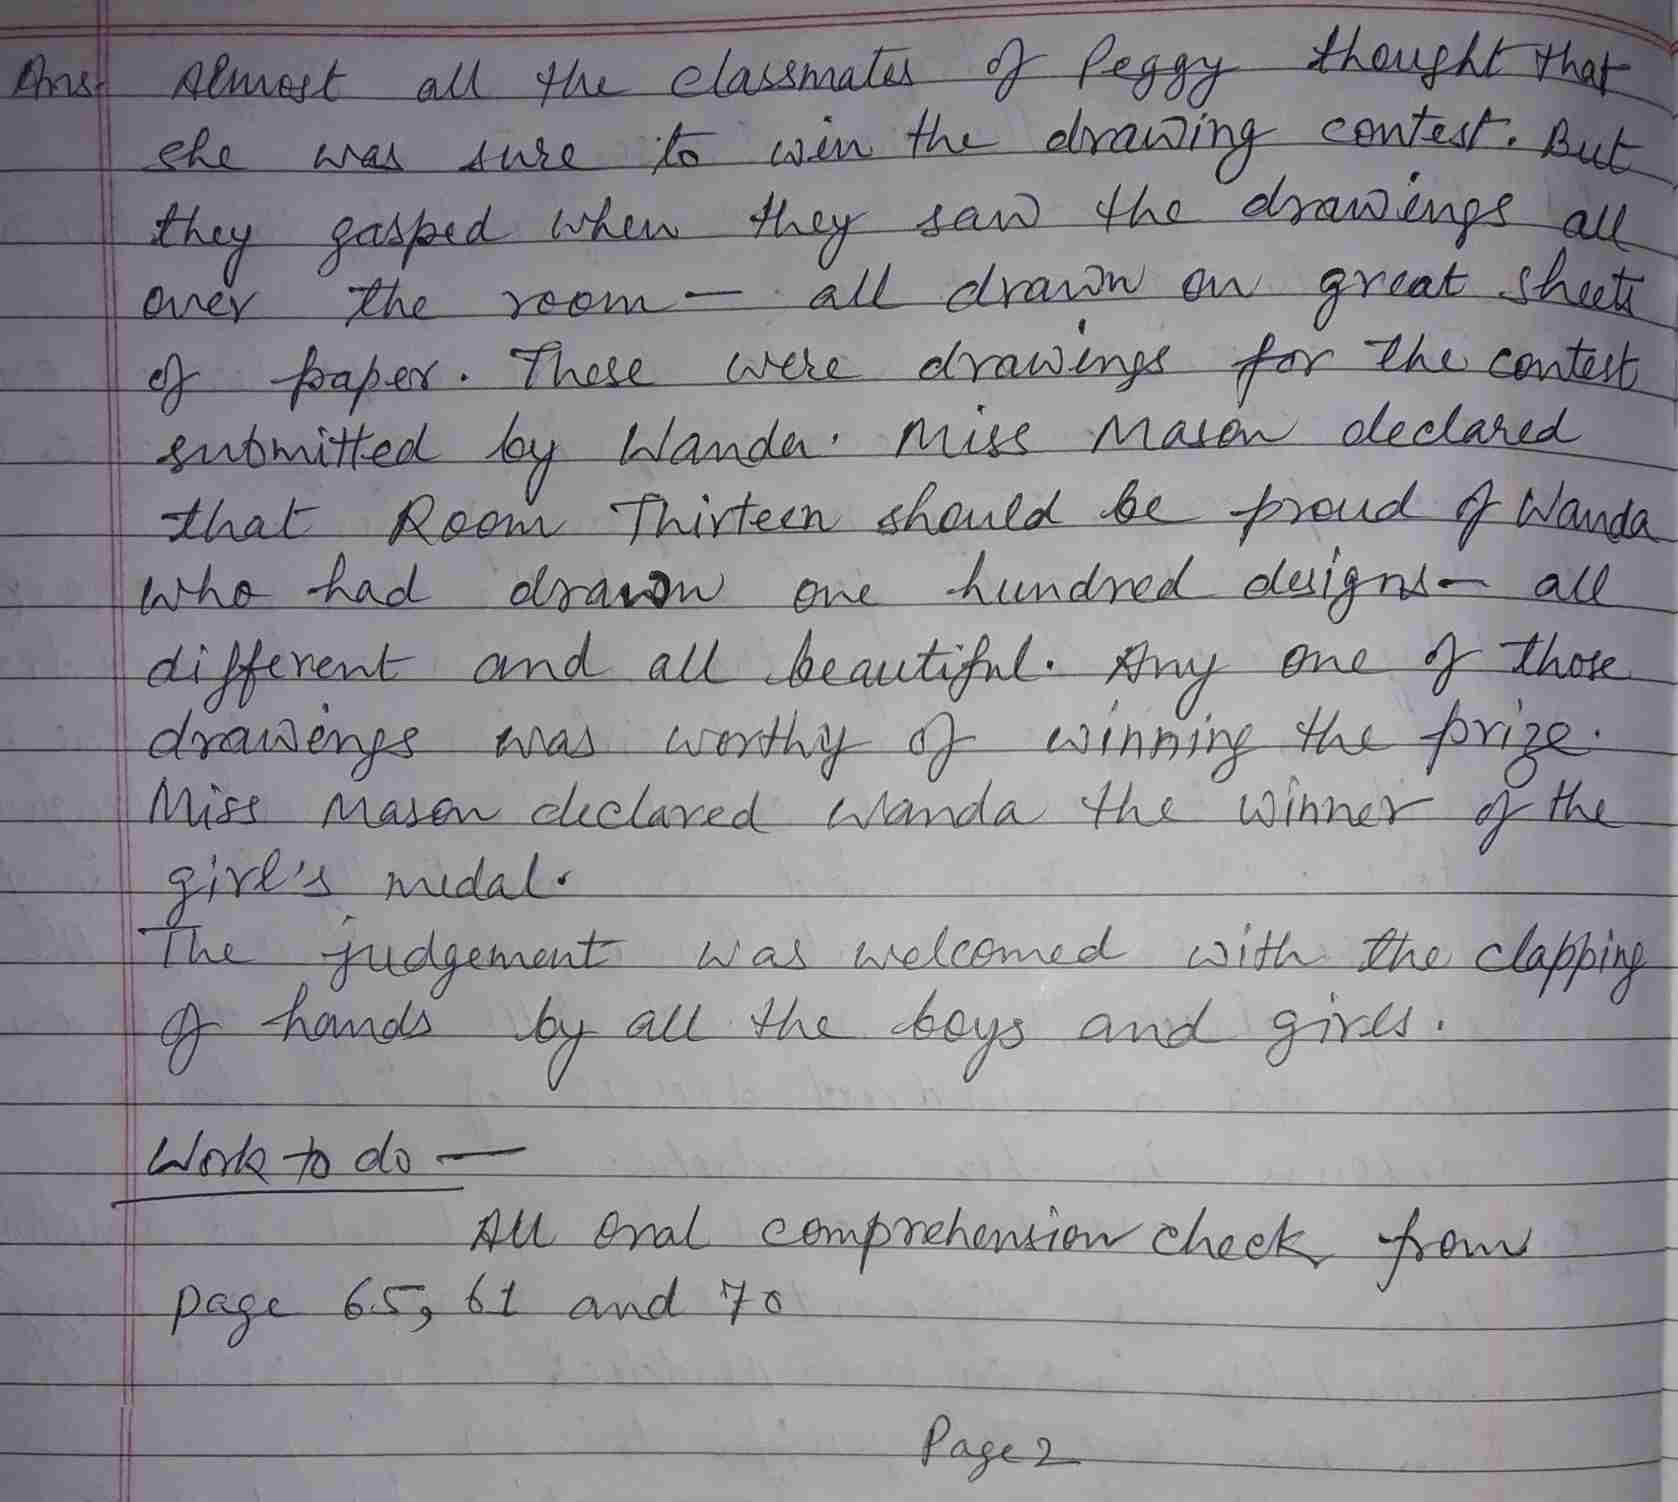 Ans. Almost all the classmates of Peggy thought that
she was sure to win the drawing contest. But
they gasped when they saw the drawings all
over the room — all drawn on great sheets
of paper. These were drawings for the contest
submitted by Wanda. Miss Mason declared
that Room Thirteen should be proud of Wanda
who had drawn one hundred designs — all
different and all beautiful. Any one of those
drawings was worthy of winning the prize.
Miss Mason declared Wanda the winner of the
girl's medal.
The judgement was welcomed with the clapping
of hands by all the boys and girls.
Work to do —
All oral comprehension check from
page 65, 61 and 70
Page 2